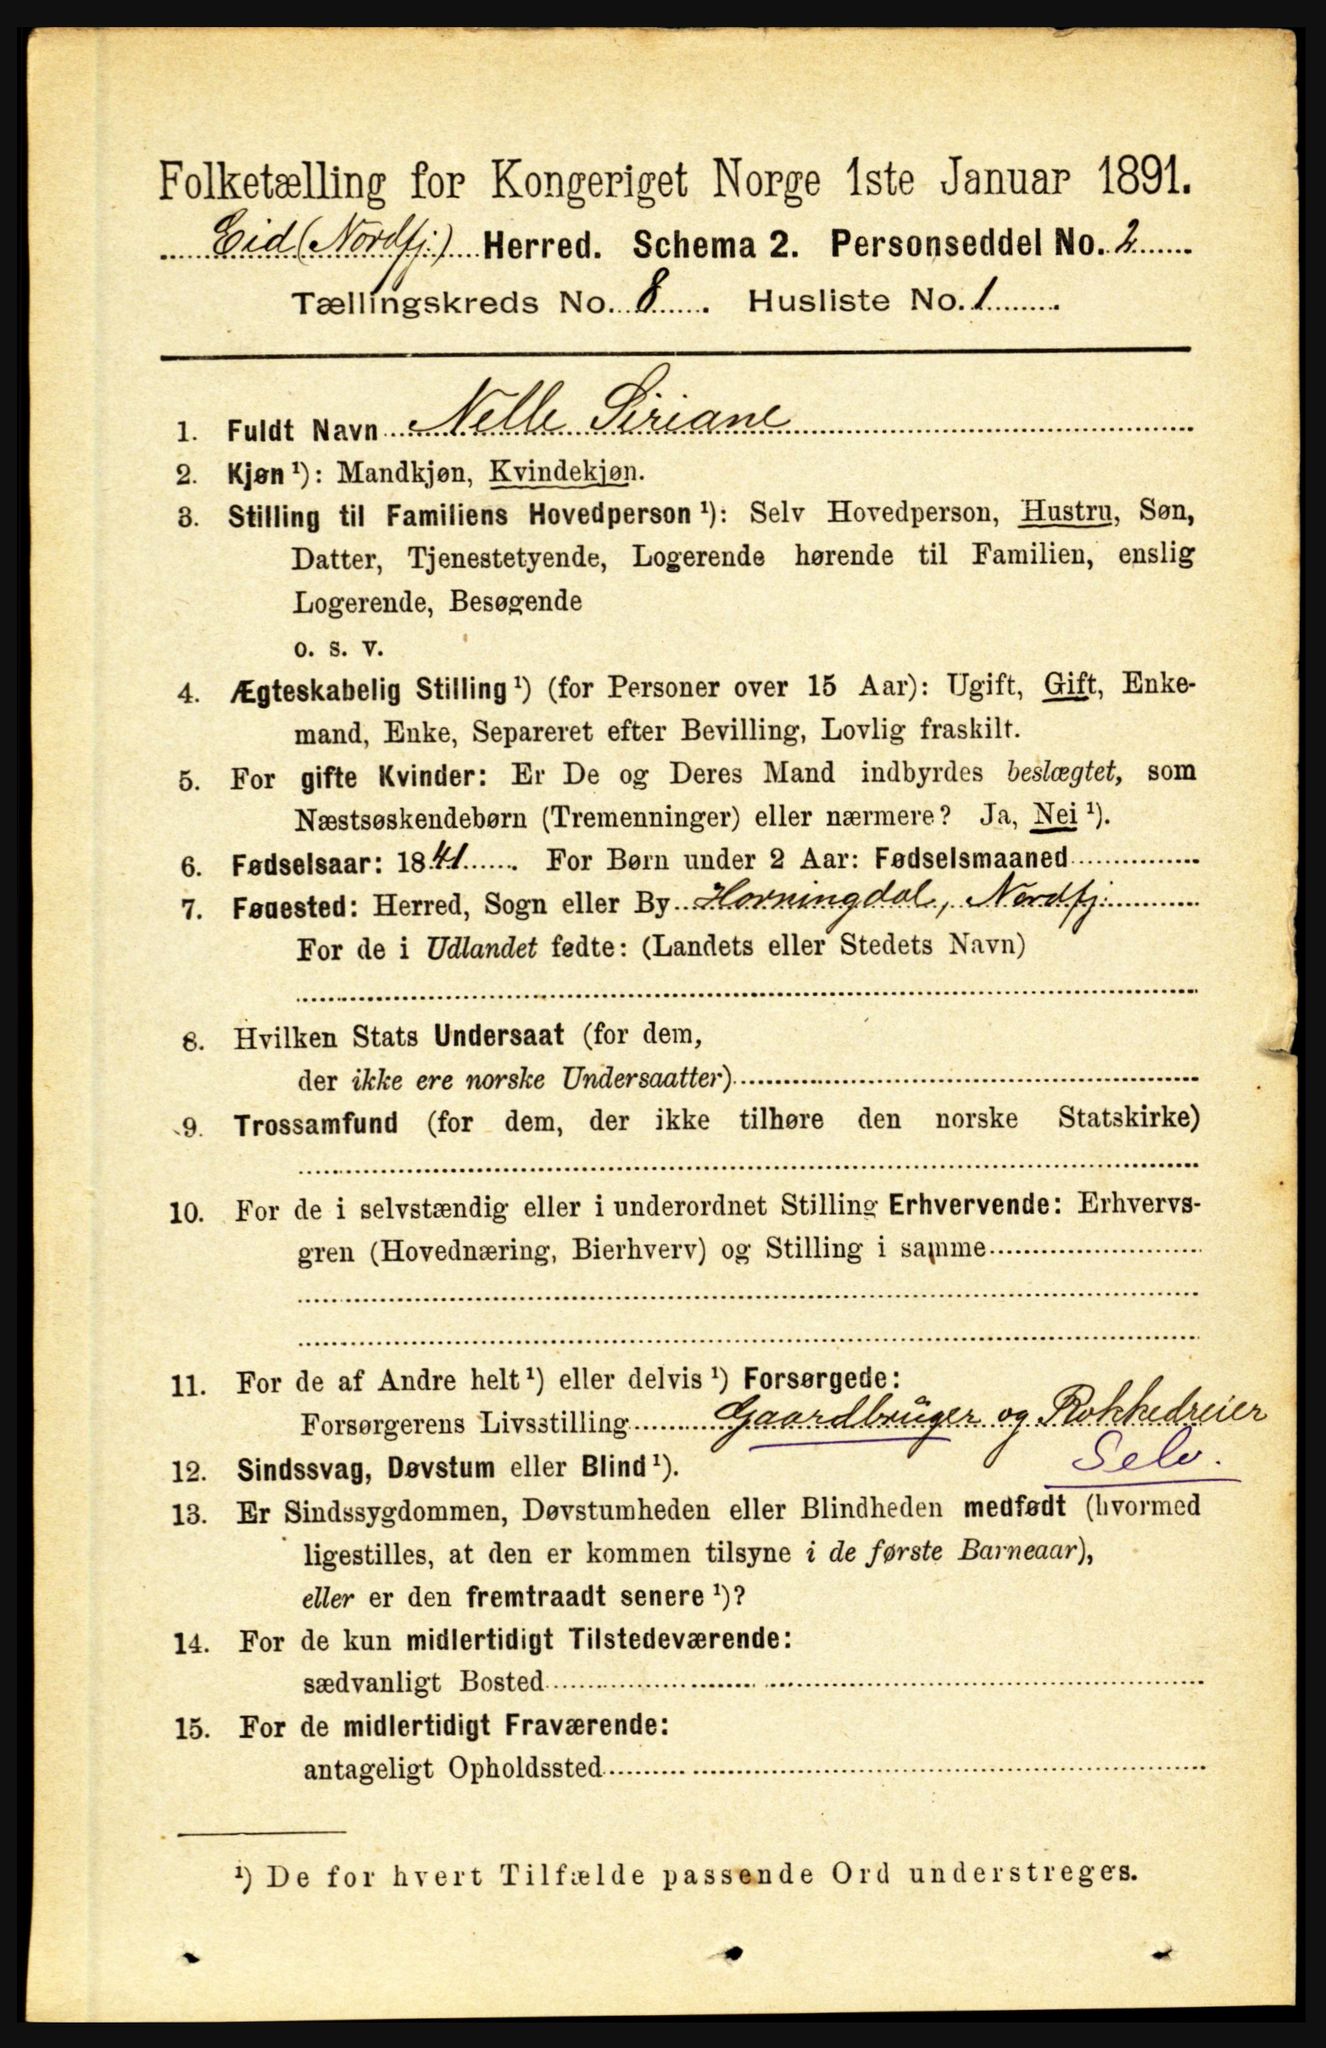 Folketælling for Kongeriget Norge 1ste Januar 1891.
Eid (Nordfj.) Herred. Schema 2. Personseddel No. 2
Tællingskreds No. 8. Husliste No. 1
1. Fuldt Navn Nelle Siriane
2. Kjøn ¹): Mandkjøn, Kvindekjøn.
3. Stilling til Familiens Hovedperson ¹): Selv Hovedperson, Hustru, Søn,
Datter, Tjenestetyende, Logerende hørende til Familien, enslig
Logerende, Besøgende
o. s. v.
4. Ægteskabelig Stilling ¹) (for Personer over 15 Aar): Ugift, Gift, Enke-
mand, Enke, Separeret efter Bevilling, Lovlig fraskilt.
5. For gifte Kvinder: Er De og Deres Mand indbyrdes beslægtet, som
Næstsøskendebørn (Tremenninger) eller nærmere? Ja, Nei ¹).
6. Fødselsaar: 1841. For Børn under 2 Aar: Fødselsmaaned
7. Føuested: Herred, Sogn eller By Horningdal, Nordfj.
For de i Udlandet fødte: (Landets eller Stedets Navn)
8. Hvilken Stats Undersaat (for dem,
der ikke ere norske Undersaatter)
9. Trossamfund (for dem, der ikke tilhøre den norske Statskirke)
10. For de i selvstændig eller i underordnet Stilling Erhvervende: Erhvervs-
gren (Hovednæring, Bierhverv) og Stilling i samme
11. For de af Andre helt ¹) eller delvis ¹) Forsørgede:
Forsørgerens Livsstilling Gaardbrüger og Rokkedreier
Selv.
12. Sindssvag, Døvstum eller Blind ¹).
13. Er Sindssygdommen, Døvstumheden eller Blindheden medfødt (hvormed
ligestilles, at den er kommen tilsyne i de første Barneaar),
eller er den fremtraadt senere ¹)?
14. For de kun midlertidigt Tilstedeværende:
sædvanligt Bosted
15. For de midlertidigt Fraværende:
antageligt Opholdssted
¹) De for hvert Tilfælde passende Ord understreges.